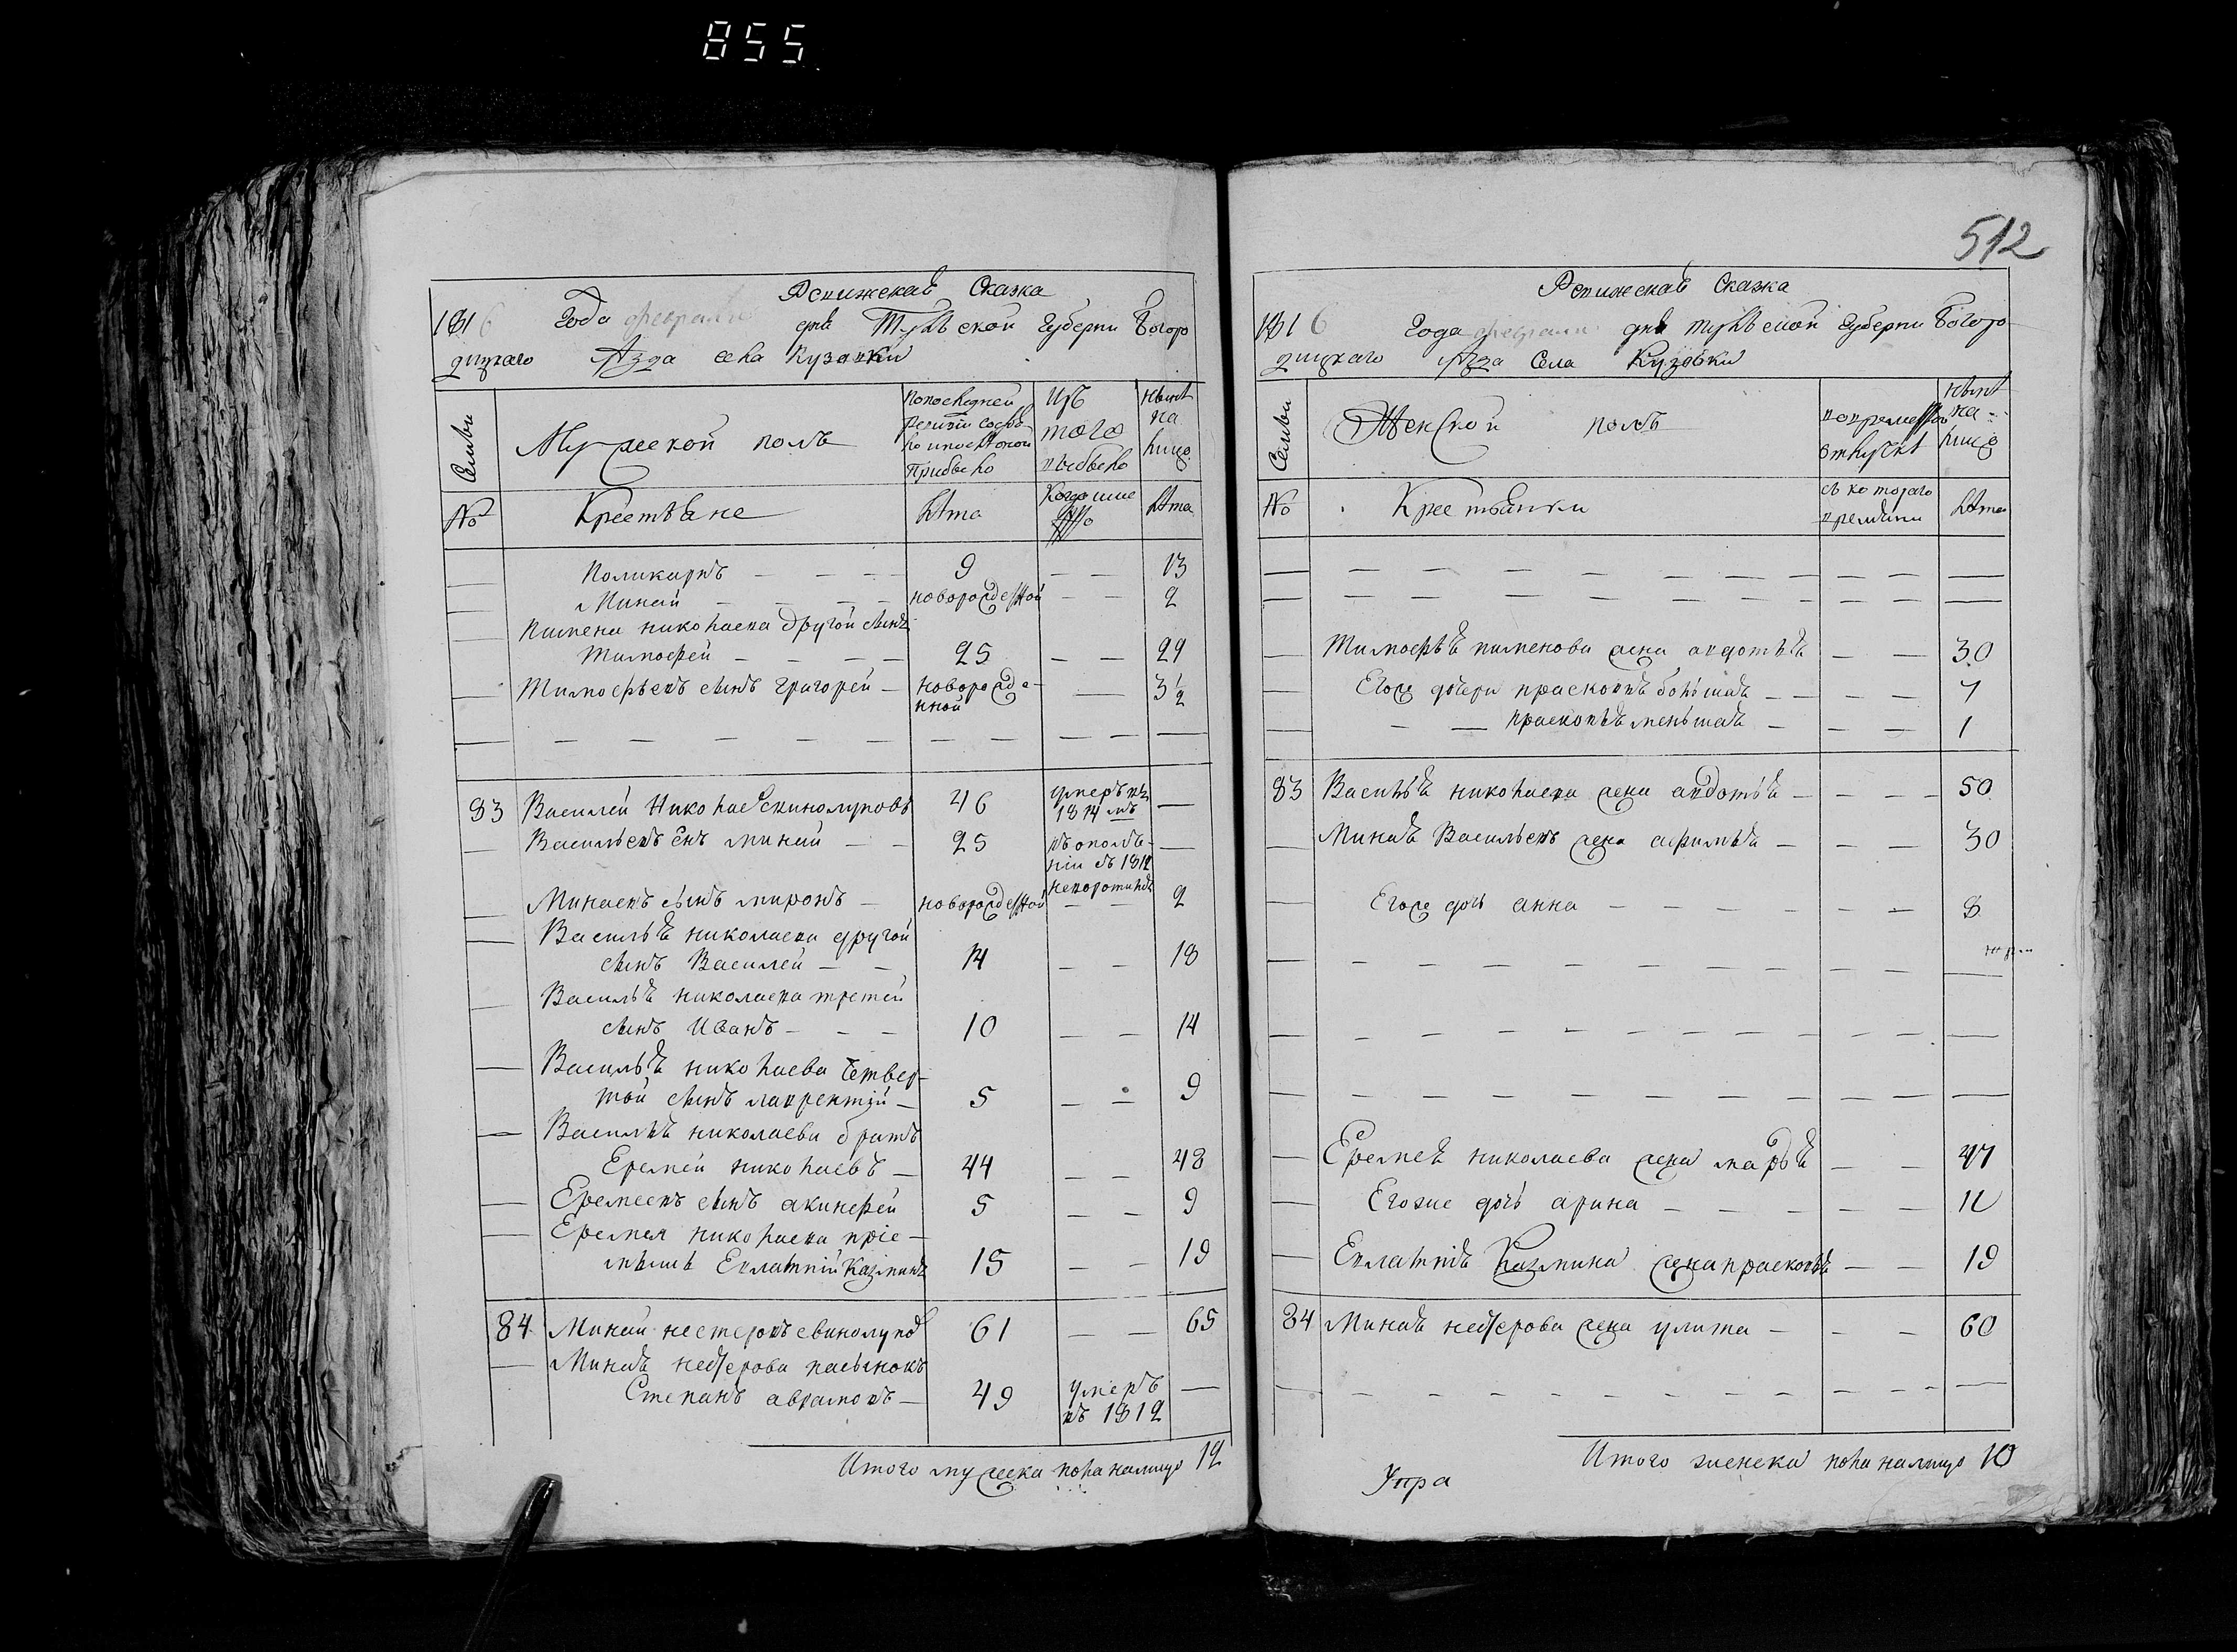 855
512
Ревижская Сказка
1816 Года февраля дня Тульской Губерни Богоро
дицкаго Уѣзда села Кузовки
Семьи
Мужеской полъ
По последней
ревизи состоя
ло и после оной
прибыло
Изъ
того
выбыло
Нынѣ
на
лицо
№
Крестьяне
Лѣта
Когда имен
но
Лѣта
Поликарпъ 9 13
Минай новорожденой 2
Пимена николаева другой сынъ
Тимофей 25 29
Тимофеевъ сынъ григорей новорожде
нной 3 1/2
83 Василей Николаевъ Свинолуповъ 46 умеръ въ
1814 мъ
Васильевъ сынъ минай 25 въ ополче
нии съ 1812
неворотился
Минаевъ сынъ миронъ новорожденой 2
Василья николаева другой
сынъ Василей 14 18
Василья николаева третей
сынъ Иванъ 10 14
Василья николаева четвер
той сынъ лаврентий 5 9
Василья николаева братъ
Еремей николаевъ 44 48
Еремеевъ сынъ акинфей 5 9
Еремея николаева прие
мышь Евлампий Казминъ 15 19
84 Минай нестеровъ свинолупов 61 65
Миная нестерова пасынокъ
Степанъ аврамовъ 49 умеръ
въ 1812
Итого мужеска пола налицо 12
Ревижская Сказка
1816 Года февраля дня тульской Губерни Богоро
дицкаго Уѣзда Села Кузовки
Семьи
Женской полъ
во временной
отлучкѣ
Нынѣ
на
лицо
№
Крестьянки
съ котораго
времяни
Лѣта
Тимофея пименова жена авдотья 30
Егож дочери прасковья большая 7
прасковья меньшая 1
83 Василья николаева жена авдотья 50
Миная Васильевъ жена афимья 30
Егож дочь анна 8
Еремея николаева жена марья 47
Егоже дочь арина 11
Евлампия Казмина жена прасковья 19
84 Миная нестерова жена улита 60
Итого женска пола налицо 10
Упра